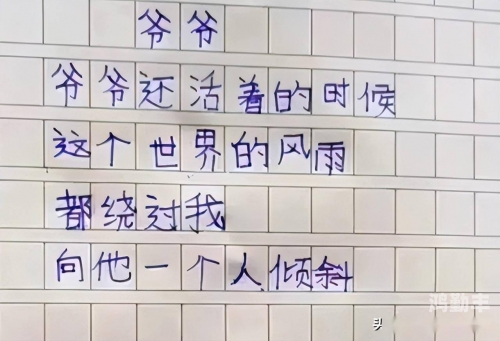 爷爷
爷爷还活着的时候
这个世界的风雨
都绕过我
向他一个人倾斜
鸿勤丰
头